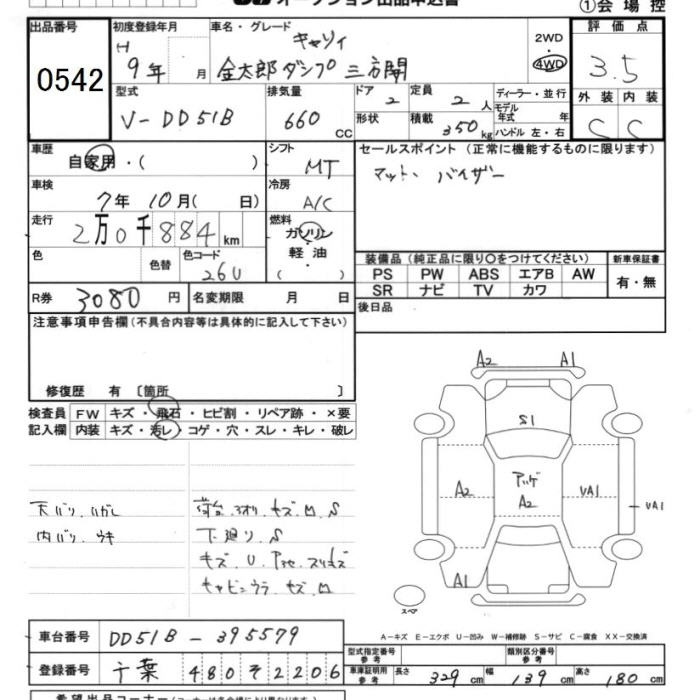 オークション出品申込書
①会場控
出品番号
0542
初度登録年月
H 9年 月
車名・グレード
キャリィ
金太郎ダンプ 三方開
2WD
4WD
評価点
3.5
型式
V-DD51B
排気量
660 CC
ドア 2
定員 2 人
ディーラー・並行
モデル年式 年式
形状
積載 350 kg
ハンドル 左・右
外装 内装
C C
車歴
自家用・( )
シフト
MT
セールスポイント (正常に機能するものに限ります)
マット、バイザー
車検
7年 10月( 日)
冷房
A/C
走行
2万0千884 km
燃料
ガソリン
軽・油
( )
色
色替
色コード
26U
装備品 (純正品に限り○をつけてください)
新車保証書
PS PW ABS エアB AW
SR ナビ TV カワ
有・無
R券 3080 円
名変期限 月 日
後日品
注意事項申告欄(不具合内容等は具体的に記入して下さい)
修復歴 有 〔箇所 〕
検査員記入欄
FW キズ・飛石・ヒビ割・リペア跡・×要
内装 キズ・汚レ・コゲ・穴・スレ・キレ・破レ
天バリ、ハガレ
内バリ、ウキ
下廻リ、S
A2 A1
S1
A2
アッゲ
A2
VA1
VA1
A1
スペア
A-キズ E-エクボ U-凹み W-補修跡 S-サビ C-腐食 XX-交換済
車台番号 DD51B-395579
登録番号 千葉 480そ2206
型式指定番号 参考
類別区分番号 参考
車庫証明用 参考 長さ 329 cm 幅 139 cm 高さ 180 cm
希望出品コーナー